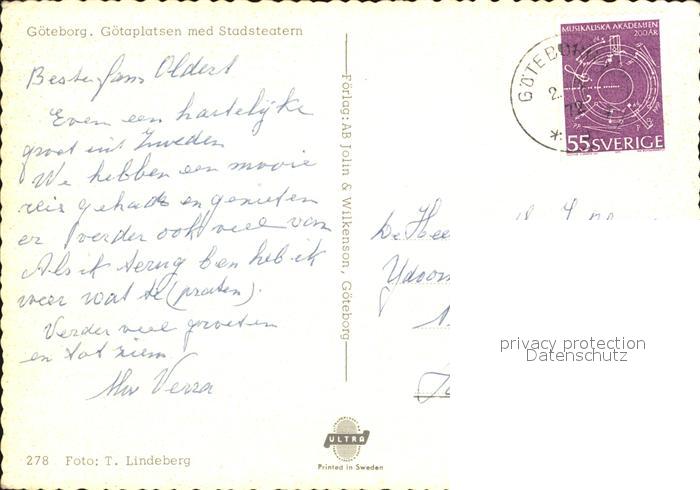 Göteborg. Götaplatsen med Stadsteatern
Beste fam Oldert
Even een hartelijke
groet uit Zweden
We hebben een mooie
reis gehad en genieten
er verder ook veel van
Als ik terug ben heb ik
weer wat te (praten).
Verder veel groeten
en tot ziens
Förlag: AB Jolin & Wilkenson, Göteborg
MUSIKALISKA AKADEMIEN
200 ÅR
55 SVERIGE
GÖTEBO
De Hee
privacy protection
Datenschutz
ULTRA
Printed in Sweden
278 Foto: T. Lindeberg